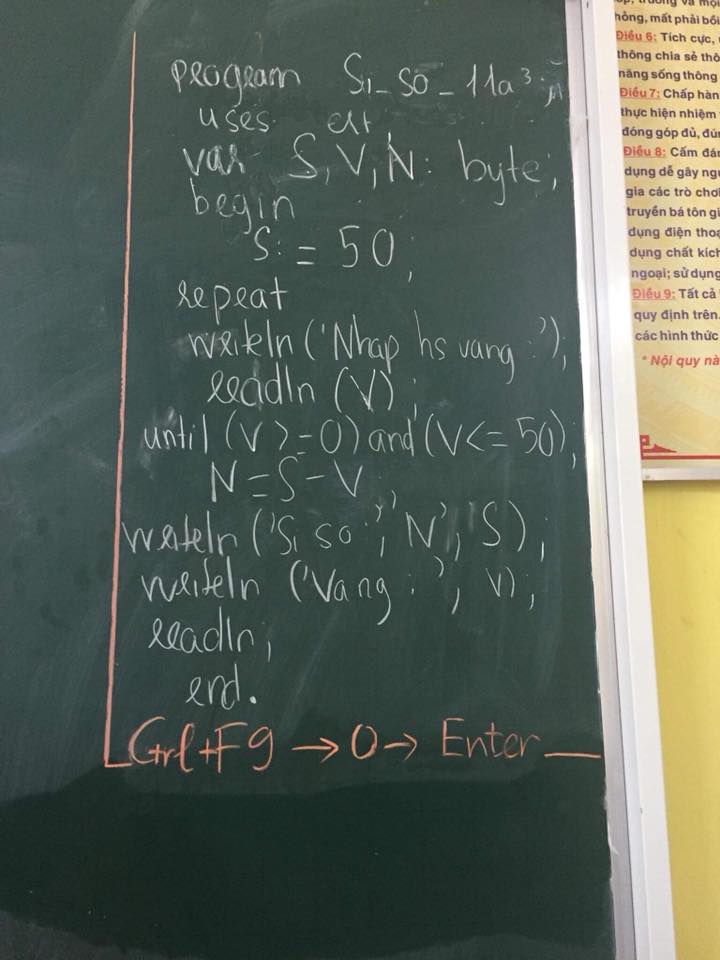 program Si_so_11a3;
uses crt,
var S,V,N: byte;
begin
S:=50;
repeat
writeln('Nhap hs vang:');
readln(V);
until(V>=0)and(V<=50);
N=S-V
writeln('Si so:',N,'/',S);
writeln('Vang:',V);
readln;
end.
Ctrl+F9→0→Enter
nỏng, mất phải bồi
Điều 6: Tích cực,
thông chia sẻ thô
năng sống thông
Điều 7: Chấp hàn
thực hiện nhiệm
đóng góp đủ, đún
Điều 8: Cấm đán
dụng dễ gây ngu
gia các trò chơi
truyền bá tôn gi
dụng điện thoạ
dụng chất kích
ngoại; sử dụng
Điều 9: Tất cả
quy định trên.
các hình thức
* Nội quy nà